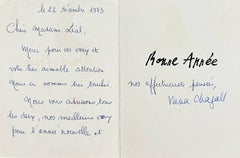 le 22 décembre 1973
Chère Madame Léal,
Merci pour vos voeux et
votre très aimable attention
Nous en sommes très touchés
Nous vous adressons tous
les deux, nos meilleurs voeux
pour l'année nouvelle et
Bonne Année
nos affectueuses pensées,
Vava Chagall